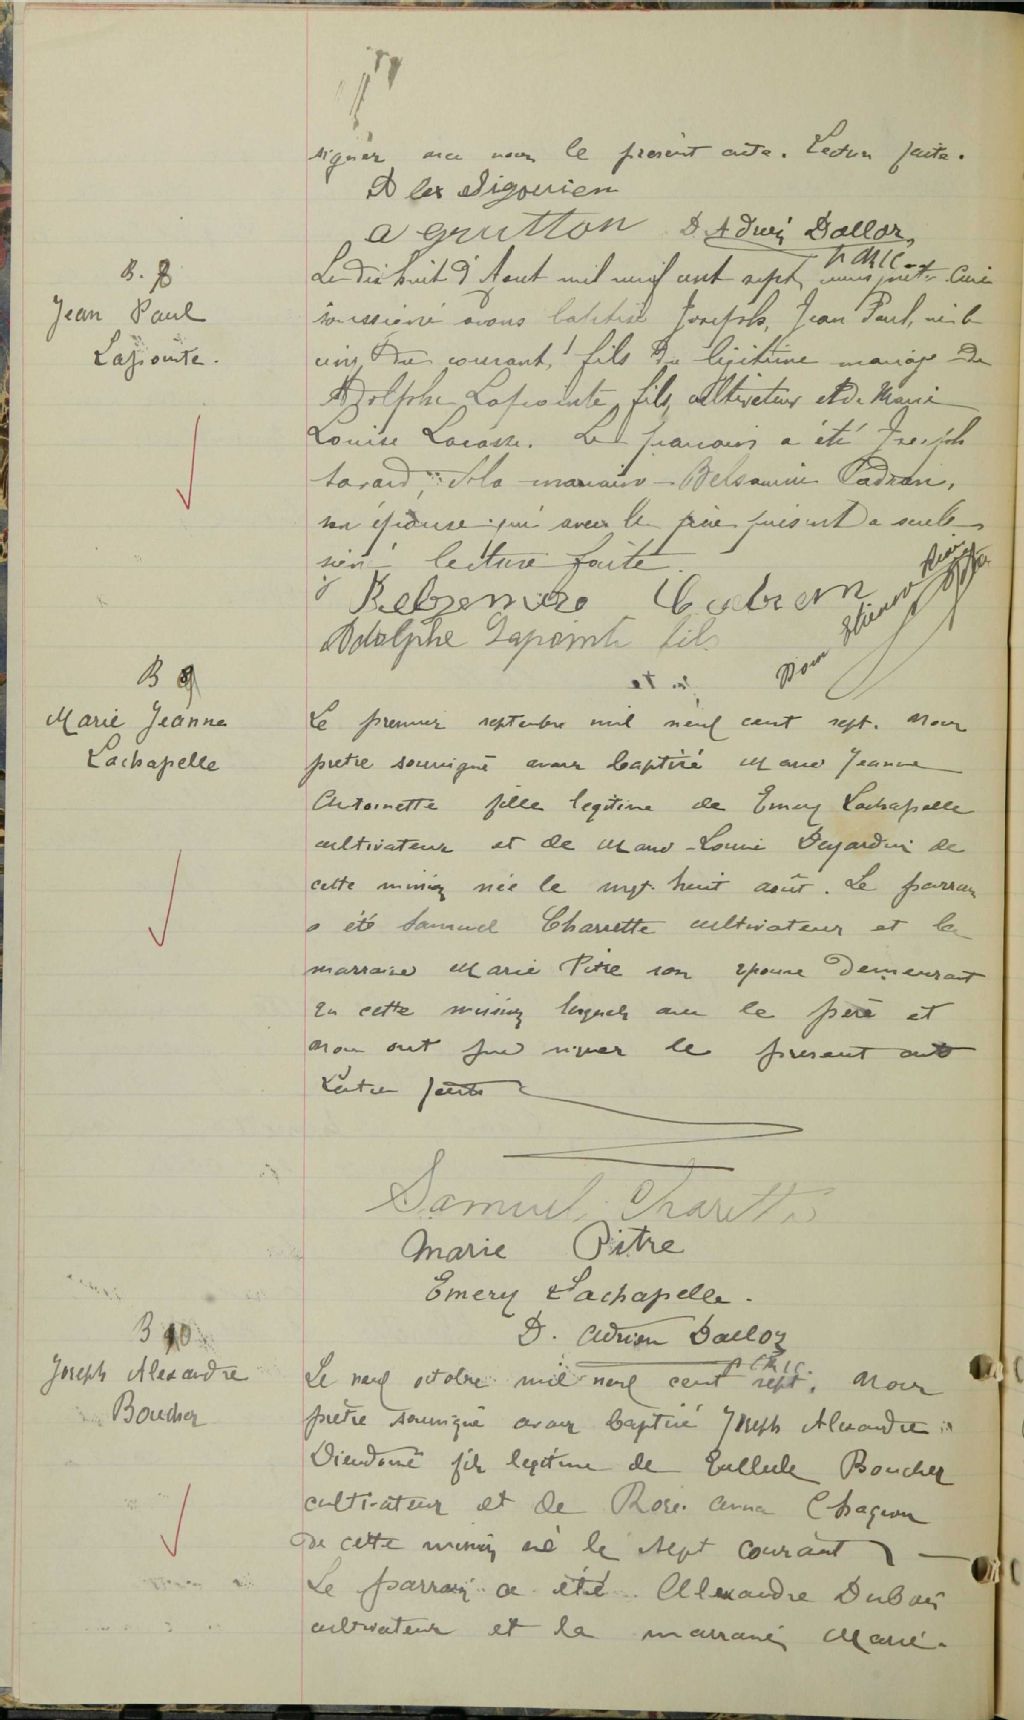 signer avec nous le présent acte. Lecture faite.
Alex Sigouien
A Grutton D. Adrien Dalloz,
p CRIC
B. 8
Jean Paul
Lapointe.
Le dix huit d'Aout mil neuf cent sept, nous prêtre Curé
soussigné avons baptisé Joseph, Jean Paul, né le
cinq du courant, fils du légitime mariage de
Adolphe Lapointe fils, cultivateur et de Marie
Louise Lacasse. Le parrain a été Joseph
Savard, et la marraine Belsemire Cadran,
son épouse qui avec le père présent a seule
signé lecture faite.
Belzemire Cadran
Adolphe Lapointe fils
Dom
B 9
Marie Jeanne
Lachapelle
Le premier septembre mil neuf cent sept. Nous
prêtre soussigné avons baptisé Marie Jeanne
Antoinette fille legitime de Emery Lachapelle
cultivateur et de Marie-Louise Dejardin de
cette mission née le vingt huit août. Le parrain
a été Samuel Charette cultivateur et la
marraine Marie Pitre son epouse demeurant
en cette mission lesquels avec le père et
nous ont signer le present acte
Lecture faite
Samuel Charette
Marie Pitre
Emery Lachapelle.
D. Adrien Dalloz
p CRIC.
B 10
Joseph Alexandre
Boucher
Le neuf octobre mil neuf cent sept. Nous
prêtre soussigné avons baptisé Joseph Alexandre
Dieudonné fils legitime de Boucher
cultivateur et de Rose. Anna Chagnon
de cette mission né le sept courant
Le parrain a été Alexandre Dubois
cultivateur et la marraine Marie.